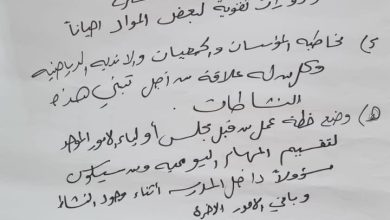 دورات تقوية لبعض المواد احياناً
د) مخاطبة المؤسسات والجمعيات والاندية الرياضية
وكل من له علاقة من أجل تبني هذه
النشاطات.
هـ) وضع خطة عمل من قبل مجلس أولياء الامور الموحد
لتقسيم المهام اليومية ومن سيكون
مسؤولاً داخل المدرسه أثناء وجود النشاط
وباقي الامور الاخرى